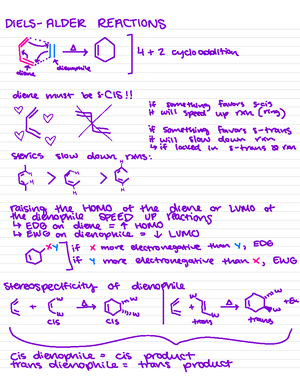 DIELS-ALDER REACTIONS
Δ
4 + 2 cycloaddition
diene
dienophile
diene must be s-CIS!!
if something favors s-cis
it will speed up rxn (ring)
if something favors s-trans
it will slow down rxn
↳ if locked in s-trans
sterics slow down rxns:
H
H
H
H
> >
raising the HOMO of the diene or LUMO of
the dienophile SPEED UP reactions
↳ EDG on diene = ↑ HOMO
↳ EWG on dienophile = ↓ LUMO
X Y
if X more electronegative than Y, EDG
if Y more electronegative than X, EWG
stereospecificity of dienophile
+ W W Δ W W
cis cis
+ W W Δ W W
trans trans
cis dienophile = cis product
trans dienophile = trans product